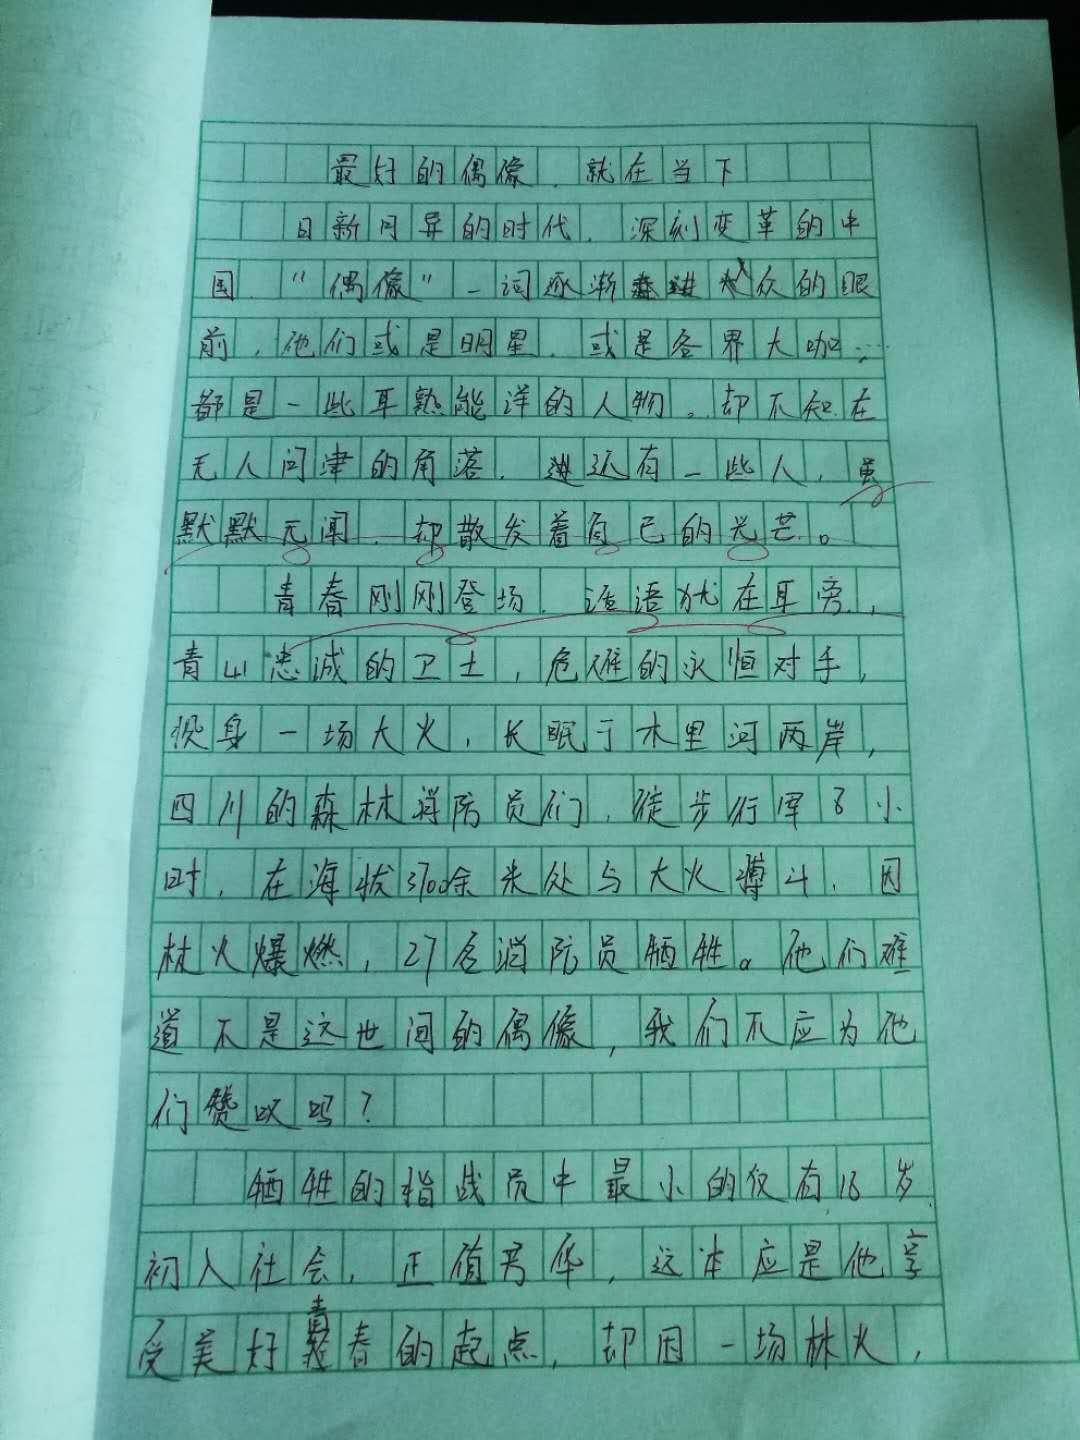 最好的偶像，就在当下
日新月异的时代，深刻变革的中
国，“偶像”一词逐渐走进大众的眼
前，他们或是明星，或是各界大咖……
都是一些耳熟能详的人物。却不知在
无人问津的角落，还有一些人，虽
默默无闻，却散发着自己的光芒。
青春刚刚登场，话语犹在耳旁，
青山忠诚的卫士，危难的永恒对手，
投身一场大火，长眠于木里河两岸，
四川的森林消防员们，徒步行军8小
时，在海拔3700余米处与大火搏斗，因
林火爆燃，27名消防员牺牲。他们难
道不是这世间的偶像，我们不应为他
们赞叹吗？
牺牲的指战员中最小的仅有18岁
初入社会，正值芳华，这本应是他享
受美好青春的起点，却因一场林火，